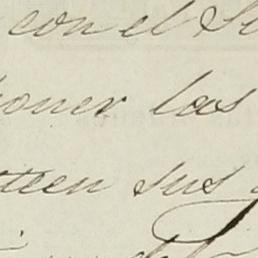 con el
oner las
tteen sus